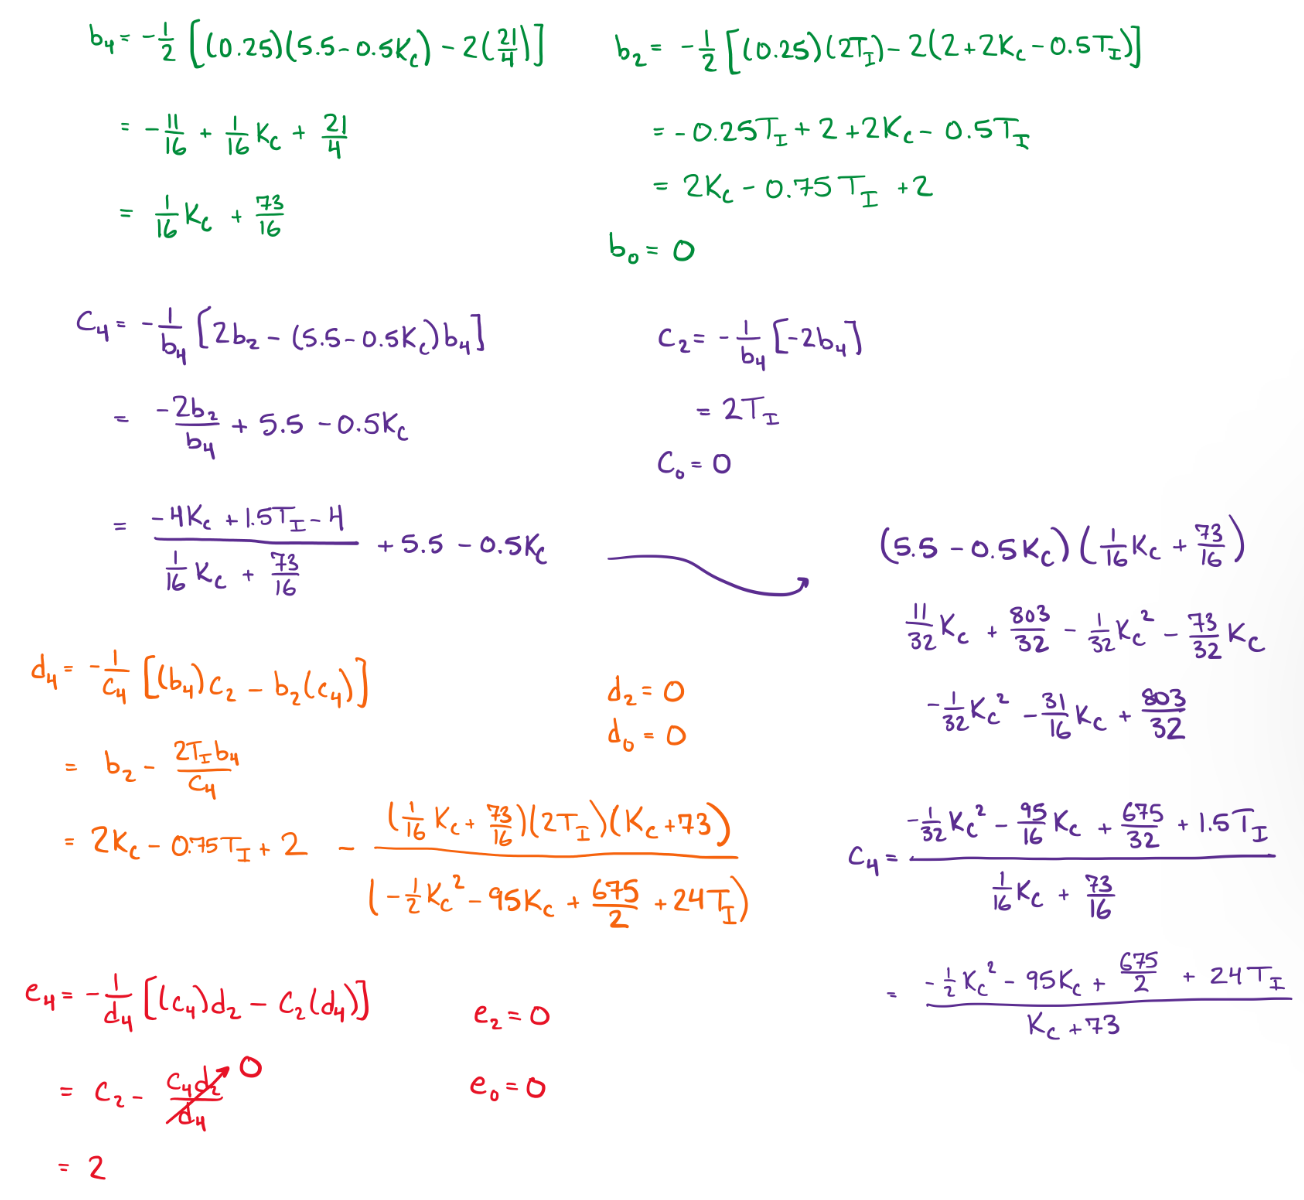 b₄ = -1/2 [(0.25)(5.5 - 0.5K_c) - 2(21/4)]
= -11/16 + 1/16 K_c + 21/4
= 1/16 K_c + 73/16
b₂ = -1/2 [(0.25)(2T_I) - 2(2 + 2K_c - 0.5T_I)]
= -0.25T_I + 2 + 2K_c - 0.5T_I
= 2K_c - 0.75T_I + 2
b₀ = 0
C₄ = -1/b₄ [2b₂ - (5.5 - 0.5K_c)b₄]
= -2b₂/b₄ + 5.5 - 0.5K_c
= (-4K_c + 1.5T_I - 4)/(1/16 K_c + 73/16) + 5.5 - 0.5K_c
C₂ = -1/b₄ [-2b₄]
= 2T_I
C₀ = 0
(5.5 - 0.5K_c)(1/16 K_c + 73/16)
11/32 K_c + 803/32 - 1/32 K_c² - 73/32 K_c
-1/32 K_c² - 31/16 K_c + 803/32
C₄ = (-1/32 K_c² - 95/16 K_c + 675/32 + 1.5T_I)/(1/16 K_c + 73/16)
= (-1/2 K_c² - 95K_c + 675/2 + 24T_I)/(K_c + 73)
d₄ = -1/C₄ [(b₄)C₂ - b₂(C₄)]
= b₂ - 2T_I b₄/C₄
= 2K_c - 0.75T_I + 2 - (1/16 K_c + 73/16)(2T_I)(K_c + 73)/(-1/2 K_c² - 95K_c + 675/2 + 24T_I)
d₂ = 0
d₀ = 0
e₄ = -1/d₄ [(C₄)d₂ - C₂(d₄)]
= C₂ - C₄d₂/d₄ 0
= 2
e₂ = 0
e₀ = 0